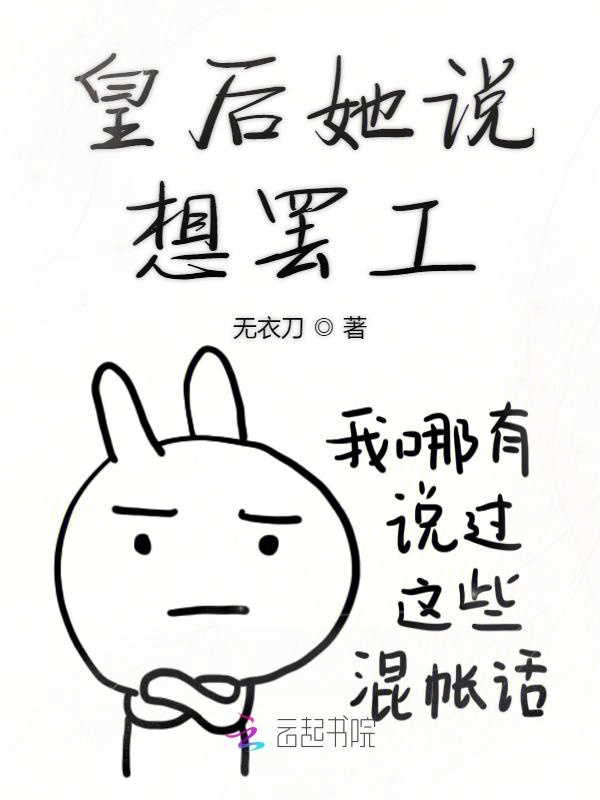 皇后她说
想罢工
无衣刀 ◎ 著
我哪有
说过
这些
混帐话
云起书院